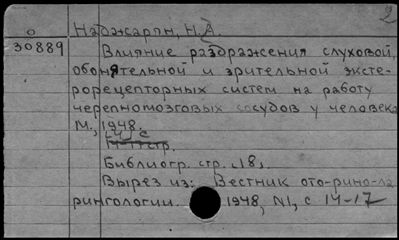 2
О Наджарян, Н.А.
30889 Влияние раздражения слуховой,
обонятельной и зрительной эксте-
рорецепторных систем на работу
черепномозговых сосудов у человека
М., 1948.
с
стр.
Библиогр. стр. 18.
Вырез из: Вестник ото-рино-ла
рингологии. 1948, N1, с 14-17